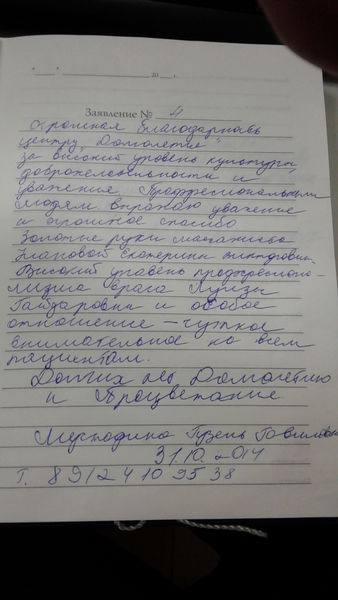 "___" ______ 20___ г.
Заявление № 4
Огромная благодарность
центру "Домолетие"
за высокий уровень культуры,
доброжелательности и
уважения. Профессиональным
людям выражаю уважение
и огромное спасибо
Золотые руки массажиста
Екатерины
Высокий уровень профессиона-
лизма врача Луизы
Гайдаровны и особое
отношение – чуткое
внимательное ко всем
пациентам.
Долгих лет Домолетию
и Процветание
31.10.2014
т. 89124109538